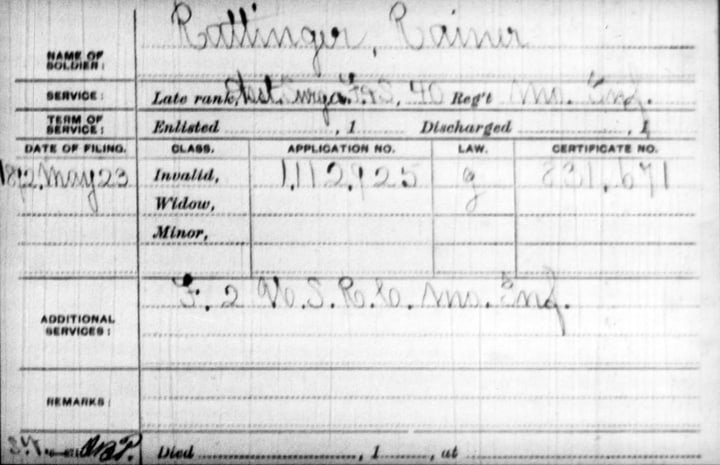 Rattinger, Rainer
NAME OF
SOLDIER:
SERVICE: Late rank, Asst. Surg. F&S, 40 Reg't Mo. Inf.
TERM OF
SERVICE: Enlisted , 1 Discharged , 1
DATE OF FILING. CLASS. APPLICATION NO. LAW. CERTIFICATE NO.
1892, May 23 Invalid, 1,112,925 g 831,671
Widow,
Minor,
F. 2 U.S.R.C. Mo. Inf.
ADDITIONAL
SERVICES:
REMARKS:
Died , 1 , at